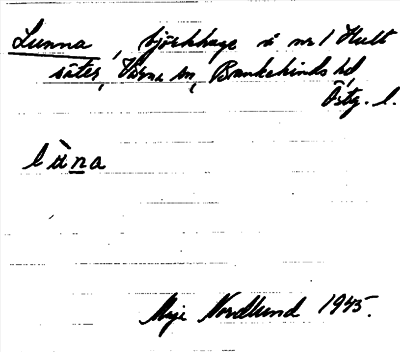 Lunna, björkhage i nr 1 Hult
säter, Värna sn, Bankekinds hd,
Östg. l.
lùna
Maje Nordlund 1945.